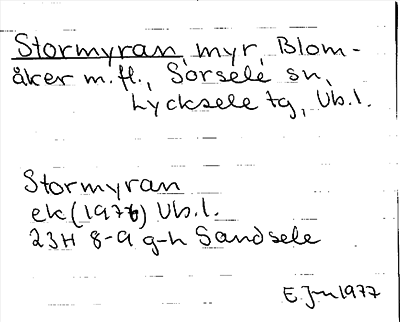 Stormyran, myr, Blom-
åker m.fl., Sorsele sn,
Lycksele tg, Vb.l.
Stormyran
ek (1976) Vb.l.
23H 8-9 g-h Sandsele
E. 1977